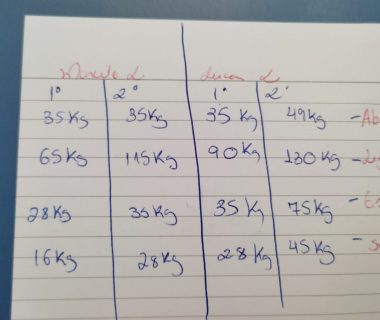 Lucas L.
1° 2° 1° 2°
35Kg 35Kg 35Kg 49Kg - Ab
65Kg 115Kg 90Kg 130Kg -
28Kg 35Kg 35Kg 75Kg -
16Kg 28Kg 28Kg 45Kg - S